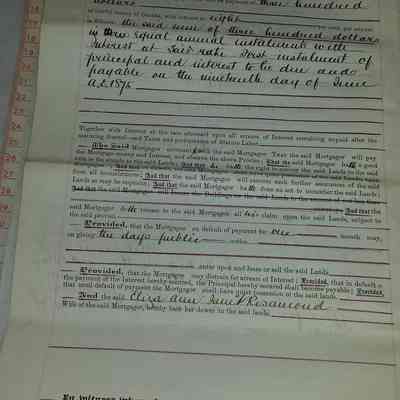 three hundred
dollars
of lawful money of Canada, with interest at eight per cent. per annum
as follows: the said sum of three hundred dollars
in three equal annual instalments with
Interest at said rate First instalment of
principal and interest to be due and
payable on the nineteenth day of June
A.D. 1875
Together with Interest at the rate aforesaid upon all arrears of Interest remaining unpaid after the
said; and Taxes and performance of Statute Labor.
The Said Mortgagor with the said Mortgagee That the said Mortgagor will pay
the Mortgage money and Interest, and observe the above Proviso; That the said Mortgagor hath a good
title in fee simple to the said Lands; And that he hath the right to convey the said Lands to the said
from all incumbrances; And that the said Mortgagor will execute such further assurances of the said
Lands as may be requisite; And that the said Mortgagor hath done no act to encumber the said Lands;
And that the said Mortgagor will insure the Buildings on the said Lands to the amount of not less than
And that the
said Mortgagor doth release to the said Mortgagee all his claim upon the said Lands, subject to
the said proviso.
Provided, that the Mortgagee on default of payment for one month may,
on giving ten days public notice
enter upon and lease or sell the said Lands
Provided, that the Mortgagee may distrain for arrears of Interest; Provided, that in default of
the payment of the Interest hereby secured, the Principal hereby secured shall become payable; Provided,
that until default of payment the Mortgagor shall have quiet possession of the said lands.
And the said Eliza Ann Janet Rosamond
Wife of the said Mortgagor, hereby bars her dower in the said lands.
In witness whereof